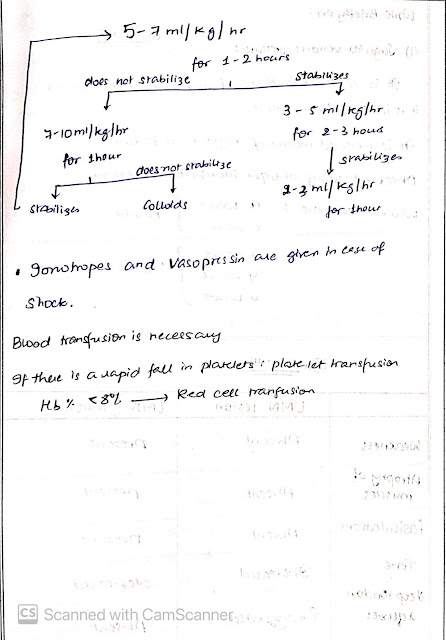 5-7 ml/kg/hr
for 1-2 hours
does not stabilize
stabilizes
7-10ml/kg/hr
for 1hour
3-5 ml/kg/hr
for 2-3 hours
does not stabilize
stabilizes
stabilizes
Colloids
2-3 ml/kg/hr
for 1hour
• Ionotropes and Vasopressin are given in case of
shock.
Blood transfusion is necessary
If there is a rapid fall in platelets : platelet transfusion
Hb % <8% → Red cell tranfusion
CS Scanned with CamScanner